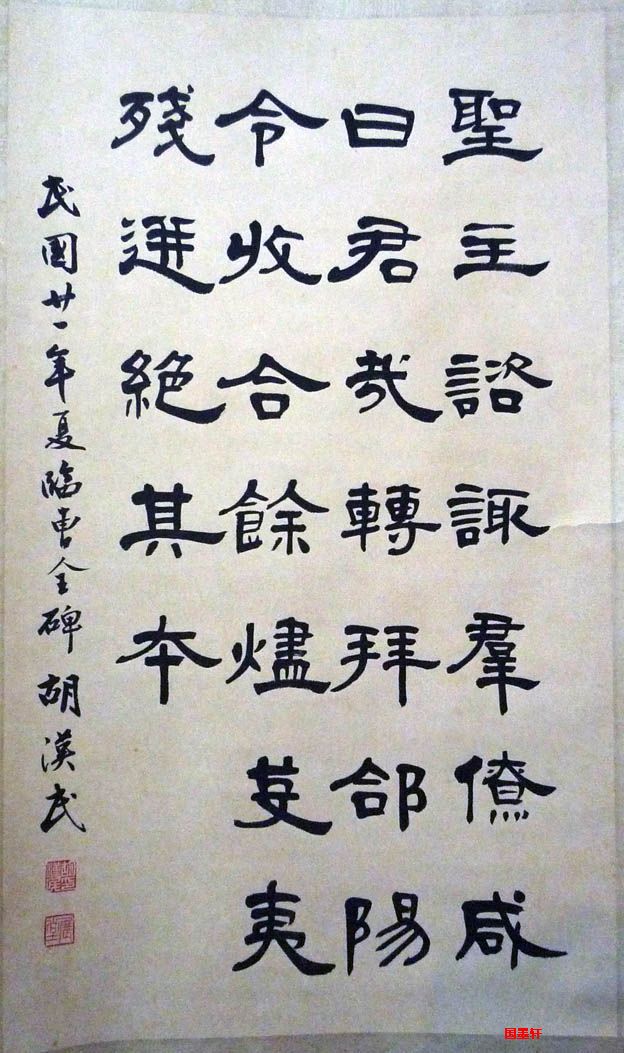 聖主諮諏羣僚咸
曰君哉轉拜郃陽
令收合餘燼芟夷
殘迸絕其本
民國廿一年夏臨曹全碑 胡漢民
国墨轩